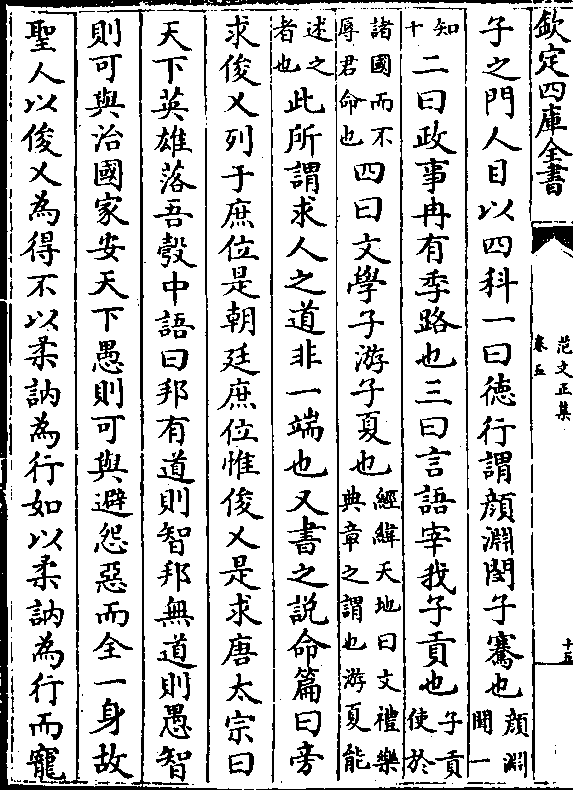 欽定四庫全書
范文正集
卷五
十五
子之門人目以四科一曰徳行謂顔淵閔子騫也顔淵聞一
知十二曰政事冉有季路也三曰言語宰我子貢也子貢使於
諸國而不辱君命也四曰文學子游子夏也經緯天地曰文禮樂典章之謂也游夏能
述之者也此所謂求人之道非一端也又書之説命篇曰旁
求俊乂列于庶位是朝廷庶位惟俊乂是求唐太宗曰
天下英雄落吾彀中語曰邦有道則智邦無道則愚智
則可與治國家安天下愚則可與避怨惡而全一身故
聖人以俊乂為得不以柔訥為行如以柔訥為行而寵